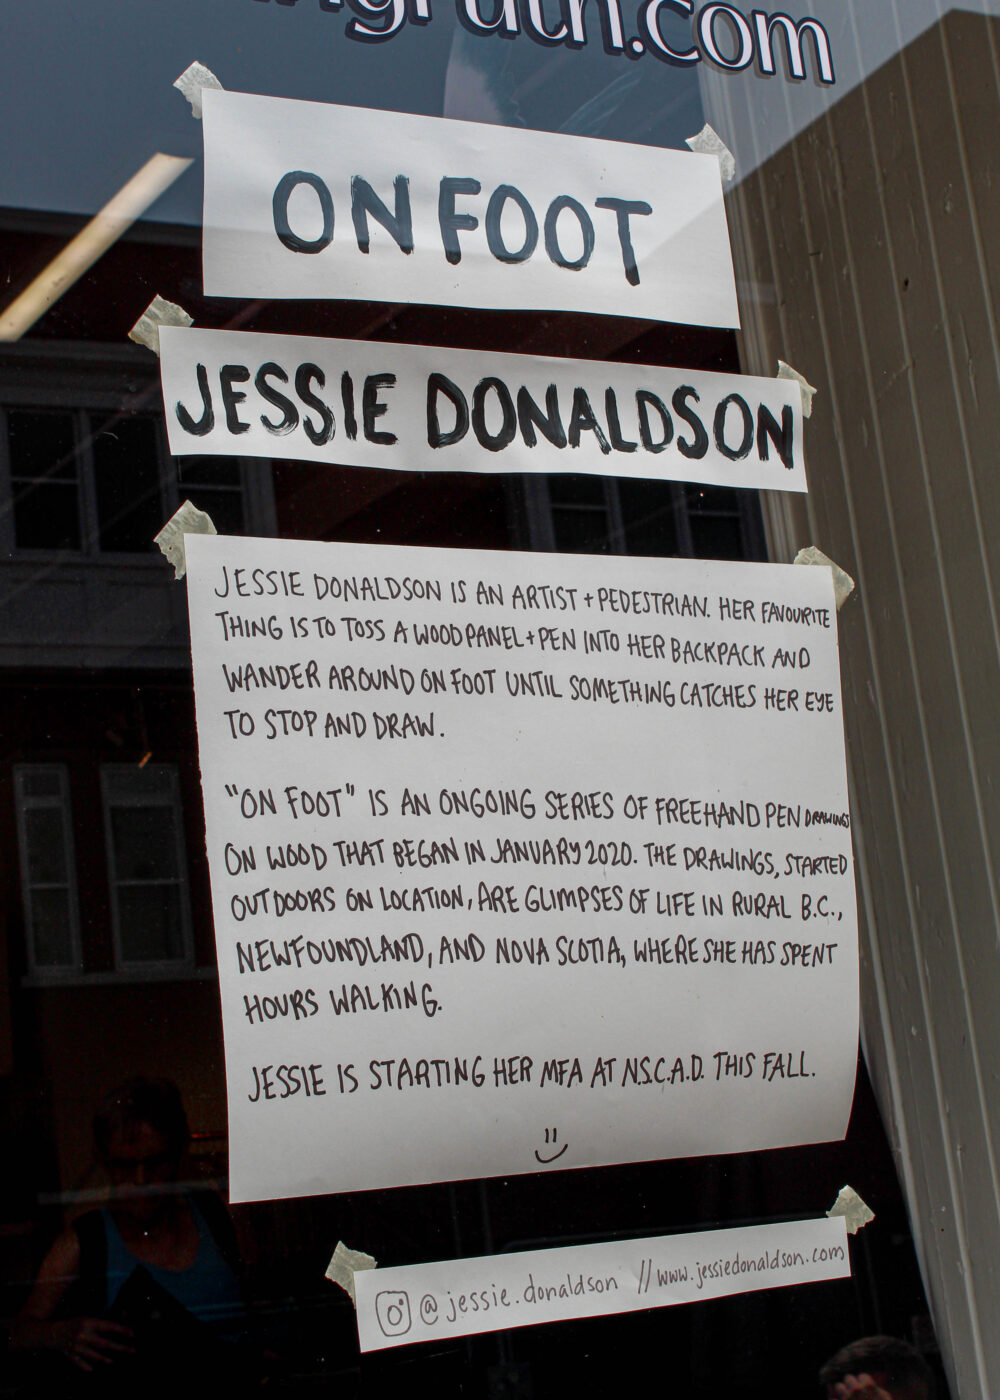 ON FOOT
JESSIE DONALDSON
JESSIE DONALDSON IS AN ARTIST + PEDESTRIAN. HER FAVOURITE
THING IS TO TOSS A WOOD PANEL + PEN INTO HER BACKPACK AND
WANDER AROUND ON FOOT UNTIL SOMETHING CATCHES HER EYE
TO STOP AND DRAW.
"ON FOOT" IS AN ONGOING SERIES OF FREEHAND PEN DRAWINGS
ON WOOD THAT BEGAN IN JANUARY 2020. THE DRAWINGS, STARTED
OUTDOORS ON LOCATION, ARE GLIMPSES OF LIFE IN RURAL B.C.,
NEWFOUNDLAND, AND NOVA SCOTIA, WHERE SHE HAS SPENT
HOURS WALKING.
JESSIE IS STARTING HER MFA AT N.S.C.A.D. THIS FALL.
@jessie.donaldson // www.jessiedonaldson.com